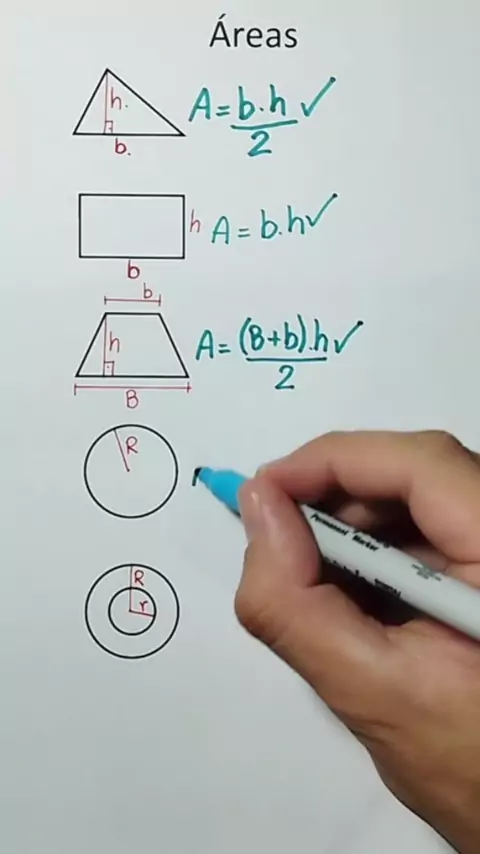 Áreas
h.
b.
A = b.h ✓
2
h
b
A = b.h ✓
b
h
B
A = (B+b).h ✓
2
R
R
r
Permanent Marker